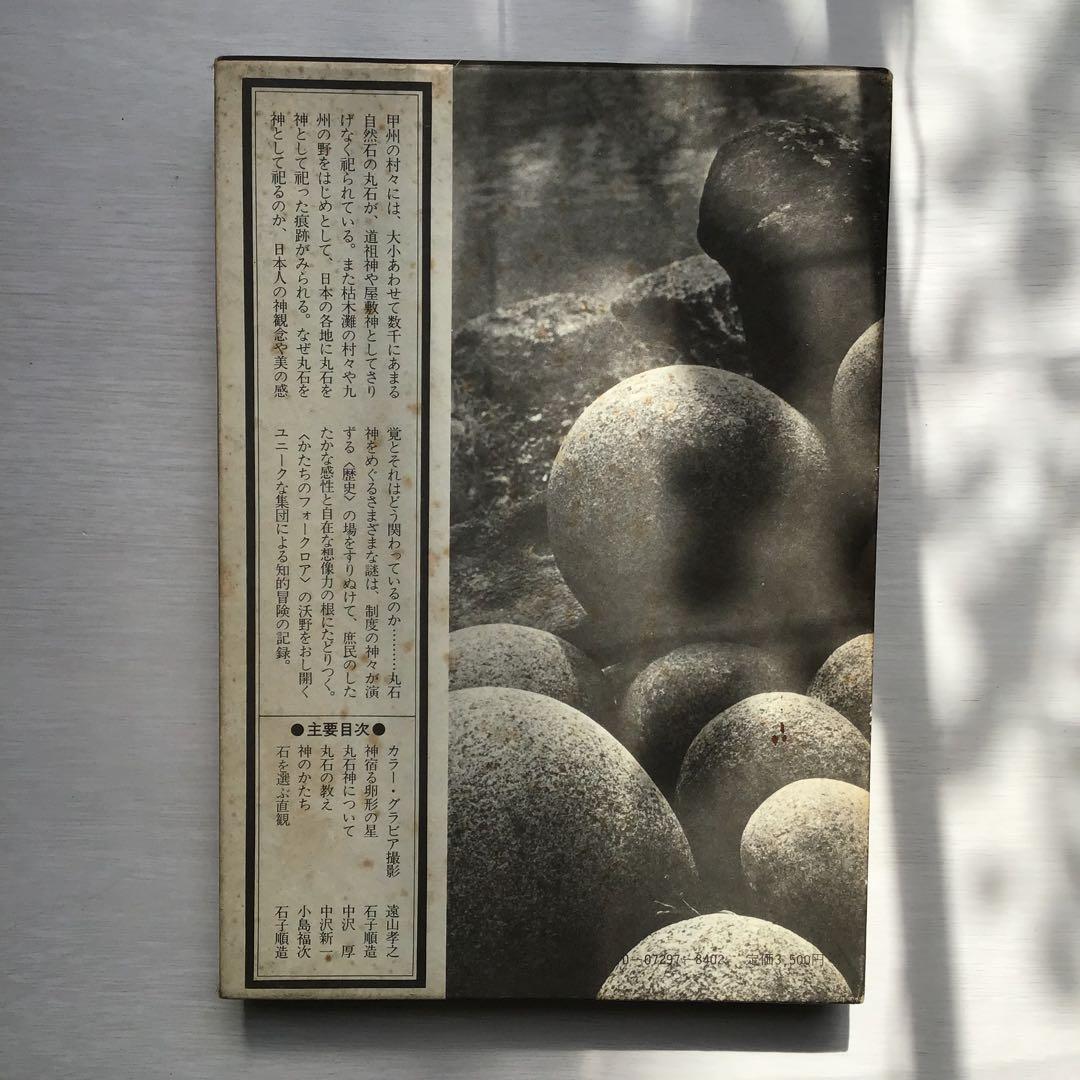 甲州の村々には、大小あわせて数千にあまる
自然石の丸石が、道祖神や屋敷神としてさり
げなく祀られている。また枯木灘の村々や九
州の野をはじめとして、日本の各地に丸石を
神として祀った痕跡がみられる。なぜ丸石を
神として祀るのか、日本人の神観念や美の感
覚とそれはどう関わっているのか………丸石
神をめぐるさまざまな謎は、制度の神々が演
ずる〈歴史〉の場をすりぬけて、庶民のした
たかな感性と自在な想像力の根にたどりつく。
〈かたちのフォークロア〉の沃野をおし開く
ユニークな集団による知的冒険の記録。
●主要目次●
カラー・グラビア撮影 遠山孝之
神宿る卵形の星 石子順造
丸石神について 中沢 厚
丸石の教え 中沢新一
神のかたち 小島福次
石を選ぶ直観 石子順造
0-07297-8402 定価3,500円